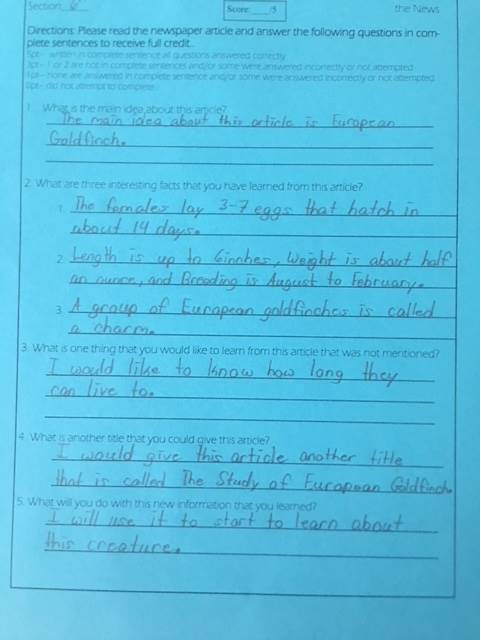 Section 6
Score: /5
the News
Directions: Please read the newspaper article and answer the following questions in com-
plete sentences to receive full credit.
5pt - written in complete sentence all questions answered correctly
3pt - 1 or 2 are not in complete sentences and/or some were answered incorrectly or not attempted
1pt - none are answered in complete sentence and/or some were answered incorrectly or not attempted
0pt - did not attempt to complete
1. What is the main idea about this article?
The main idea about this article is European
Goldfinch.
2. What are three interesting facts that you have learned from this article?
1. The females lay 3-7 eggs that hatch in
about 14 days.
2. Length is up to 6innhes, Weight is about half
an ounce, and Breeding is August to February.
3. A group of European goldfinches is called
a charm.
3. What is one thing that you would like to learn from this article that was not mentioned?
I would like to know how long they
can live to.
4. What is another title that you could give this article?
I would give this article another title
that is called The Study of European Goldfinch.
5. What will you do with this new information that you learned?
I will use it to start to learn about
this creature.